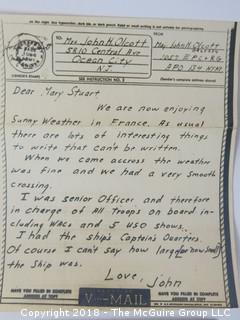 TO:
FROM
Mrs. John H. Olcott
5810 Central Ave
Ocean City
N.J.
Maj. John H. Olcott
APO 134 N.Y.
(CENSOR'S STAMP)
SEE INSTRUCTION NO. 2
(Sender's complete address above)
Dear Mary Stuart
We are now enjoying
Sunny Weather in France. As usual
there are lots of interesting things
to write that can't be written.
When we come accross the weather
was fine and we had a very smooth
crossing.
I was senior Officer and therefore
in charge of All Troops on board in-
cluding WACs and 5 USO shows.
I had the ship's Captain's Quarters.
Of course I can't say how large (or how small)
the Ship was.
Love,
John
HAVE YOU FILLED IN COMPLETE
ADDRESS AT TOP?
V···-MAIL
HAVE YOU FILLED IN COMPLETE
ADDRESS AT TOP?
Copyright 2018 - The McGuire Group LLC